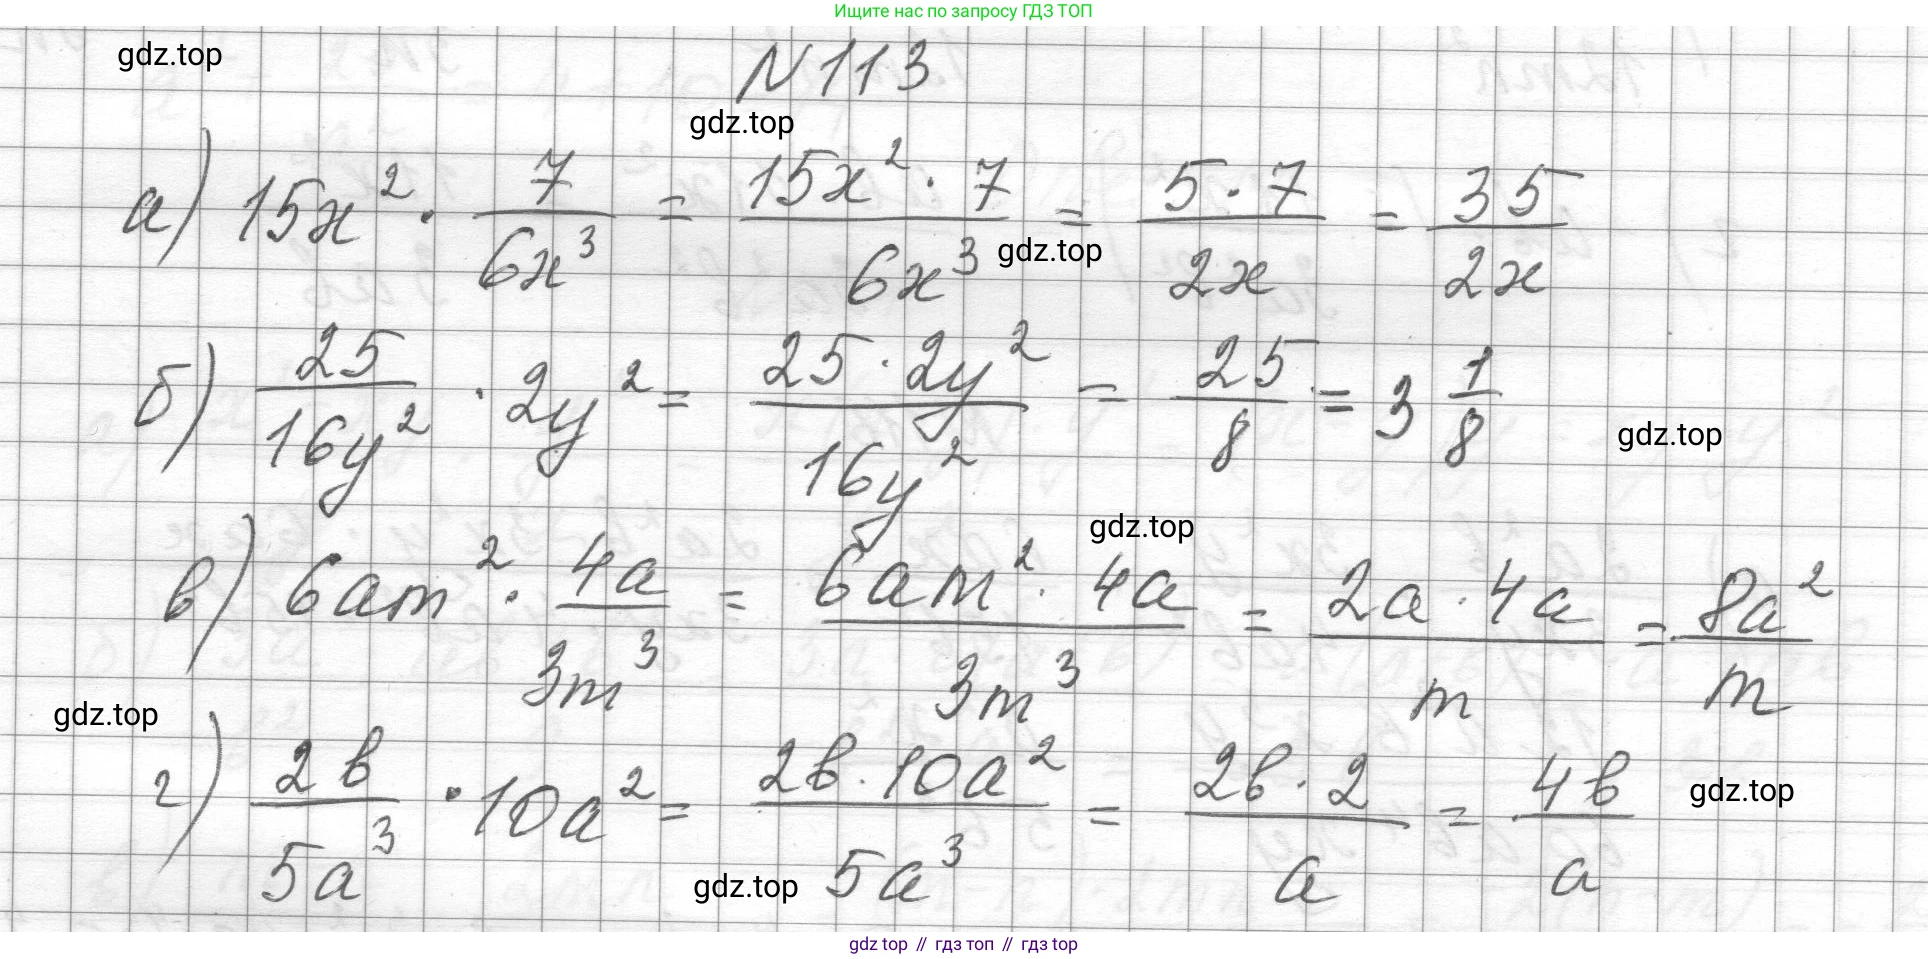 Ищите нас по запросу ГДЗ ТОП
gdz.top
N 113
gdz.top
а) 15x² · 7/6x³ = 15x² · 7/6x³ = 5 · 7/2x = 35/2x
gdz.top
б) 25/16y² · 2y² = 25 · 2y²/16y² = 25/8 = 3 1/8
gdz.top
gdz.top
в) 6am² · 4a/3m³ = 6am² · 4a/3m³ = 2a · 4a/m = 8a²/m
gdz.top
г) 2b/5a³ · 10a² = 2b · 10a²/5a³ = 2b · 2/a = 4b/a
gdz.top
gdz.top
gdz top // гдз топ // гдз top